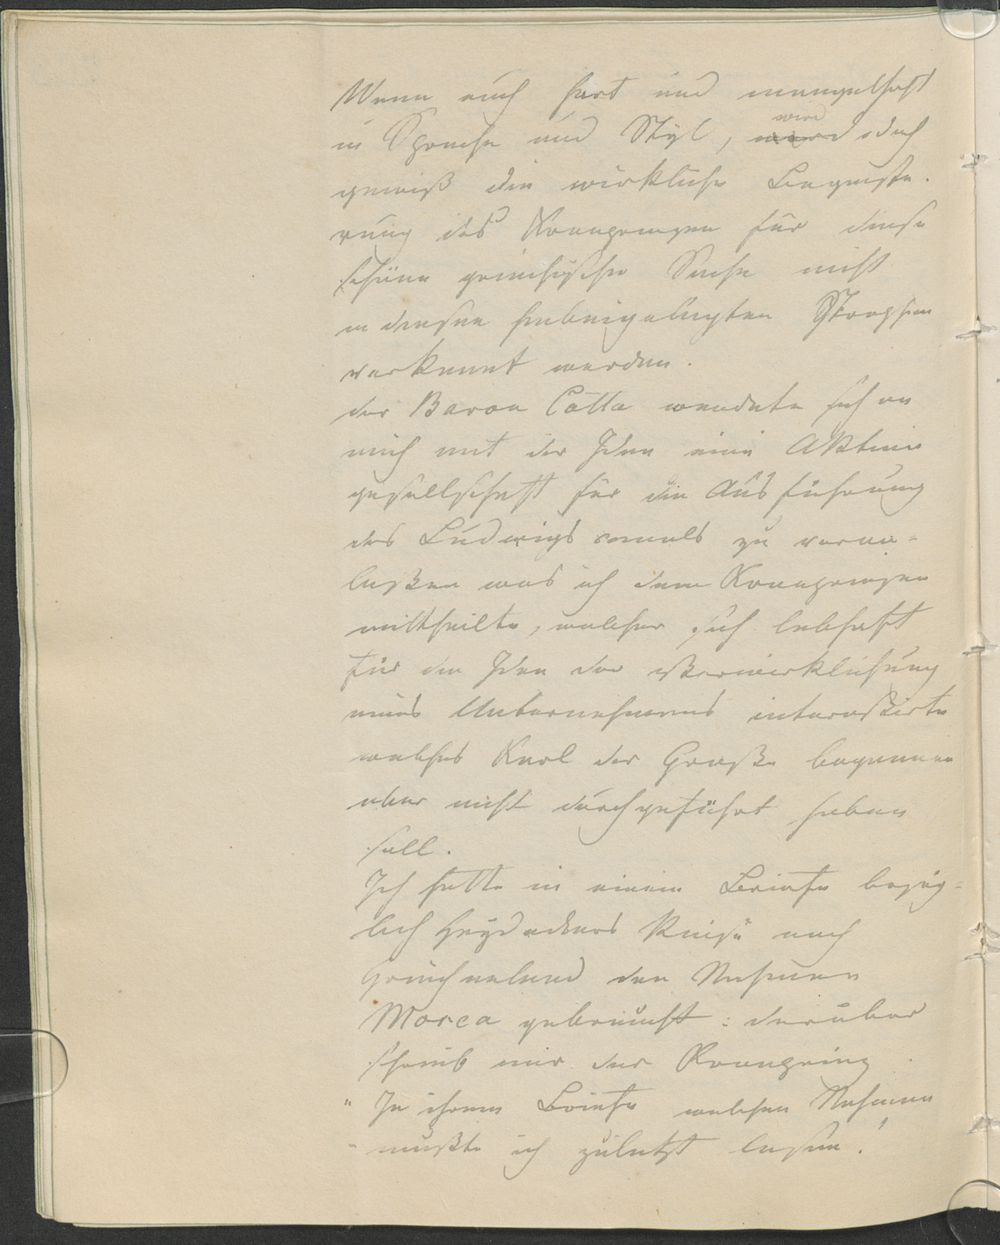 Wenn auch hart und mangelhaft
in Sprache und Styl, wird doch
gewiß die wirkliche Begeiste-
rung des Kronprinzen für diese
schöne griechische Sache nicht
in diesen hierbeigelegten Strophen
verkannt werden.
Der Baron Cotta wendete sich an
mich mit der Idee eine Aktien
gesellschaft für die Ausführung
des Ludwigs canals zu veran-
laßen was ich dem Kronprinzen
mittheilte, welcher sich lebhaft
für die Idee der Verwirklichung
eines Unternehmens interessirte
welches Karl der Große begonnen
aber nicht durchgeführt haben
soll.
Ich hatte in einem Briefe bezüg-
lich Heydeckers Reise nach
Griechenland den Nahmen
Morea gebraucht: darüber
schrieb mir der Kronprinz
"In ihrem Briefe welchen Nahmen
" mußte ich zuletzt lesen!